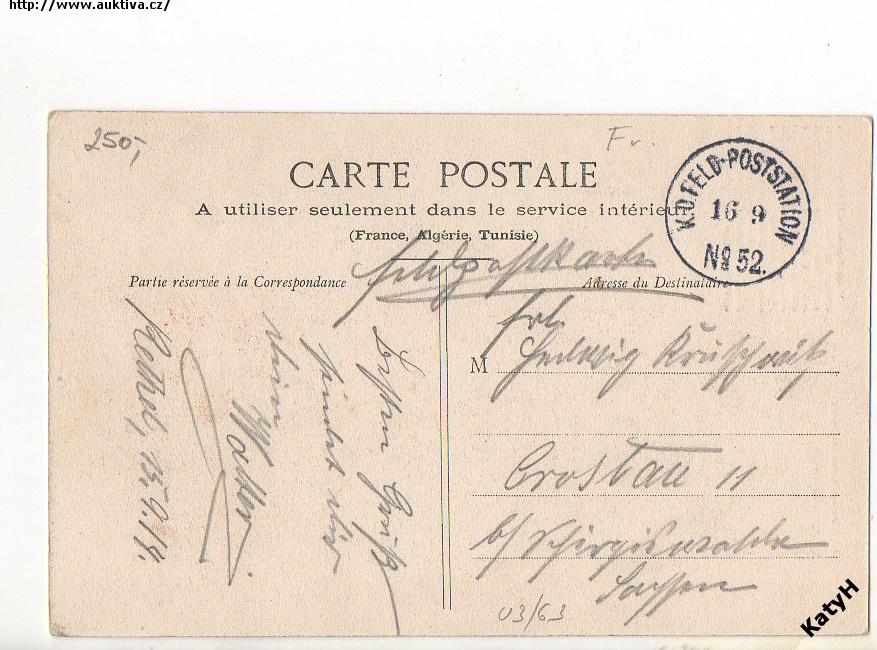 http://www.auktiva.cz/
250,-
Fr.
CARTE POSTALE
A utiliser seulement dans le service intérieur
(France, Algérie, Tunisie)
K.D. FELD-POSTSTATION
16 9
No 52.
Feldpostkarte
Partie réservée à la Correspondance
Adresse du Destinataire
Frl.
M Hedwig
Crostau 11
b/ Schirgiswalde
Sachsen
Rethel, 15.9.14.
Besten Gruß
sendet dir
dein
Walter
U3/63
KatyH